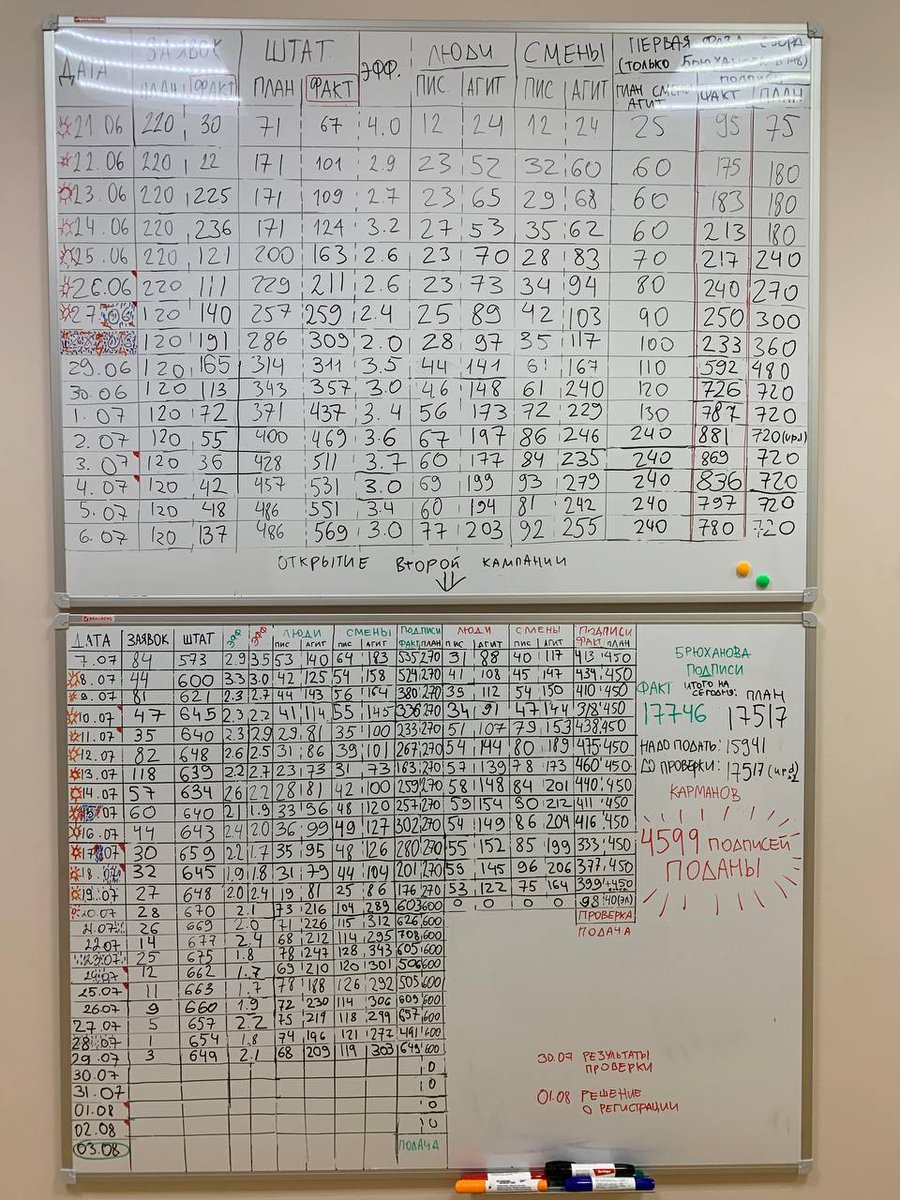 BRAUBERG
ДАТА ЗАЯВОК ШТАТ ЭФФ. ЛЮДИ СМЕНЫ ПЕРВАЯ ФАЗА СБОРА
(ТОЛЬКО БРЮХАНОВА В МБ)
ПЛАН ФАКТ ПЛАН ФАКТ ПИС. АГИТ ПИС АГИТ ПЛАН СМЕН АГИТ ПОДПИСИ ФАКТ ПЛАН
21.06 220 30 71 67 4.0 12 24 12 24 25 95 75
22.06 220 22 171 101 2.9 23 52 32 60 60 175 180
23.06 220 225 171 109 2.7 23 65 29 68 60 183 180
24.06 220 236 171 124 3.2 27 53 35 62 60 213 180
25.06 220 121 200 163 2.6 23 70 28 83 70 217 240
26.06 220 111 229 211 2.6 23 73 34 94 80 240 270
27.06 120 140 257 259 2.4 25 89 42 103 90 250 300
120 191 286 309 2.0 28 97 35 117 100 233 360
29.06 120 165 314 311 3.5 44 141 61 167 110 592 480
30.06 120 113 343 357 3.0 46 148 61 240 120 726 720
1.07 120 72 371 437 3.4 56 173 72 229 130 787 720
2.07 120 55 400 469 3.6 67 197 86 246 240 881 720(upd)
3.07 120 36 428 511 3.7 60 177 84 235 240 869 720
4.07 120 42 457 531 3.0 69 199 93 279 240 836 720
5.07 120 48 486 551 3.4 60 194 81 242 240 797 720
6.07 120 137 486 569 3.0 77 203 92 255 240 780 720
ОТКРЫТИЕ ВТОРОЙ КАМПАНИИ
BRAUBERG
ДАТА ЗАЯВОК ШТАТ ЭФФ ЭФФ ЛЮДИ СМЕНЫ ПОДПИСИ ЛЮДИ СМЕНЫ ПОДПИСИ
ПИС АГИТ ПИС АГИТ ФАКТ ПЛАН ПИС АГИТ ПИС АГИТ ФАКТ ПЛАН
7.07 84 573 2.9 3.5 53 140 64 183 535 270 31 88 40 117 413 450
8.07 44 600 3.3 3.0 42 125 54 158 524 270 41 108 45 147 434 450
9.07 81 621 2.3 2.7 44 143 56 164 380 270 39 112 54 150 410 450
10.07 47 645 2.3 2.2 41 114 55 145 336 270 34 91 47 144 318 450
11.07 35 640 2.3 2.9 29 81 35 100 233 270 51 107 79 153 438 450
12.07 82 648 2.6 2.5 31 86 39 101 267 270 54 144 80 189 475 450
13.07 118 639 2.2 2.7 23 73 31 73 163 270 57 139 78 173 460 450
14.07 57 634 2.6 2.2 28 81 42 100 259 270 58 148 84 201 440 450
15.07 60 640 2.1 1.9 33 96 48 120 257 270 59 154 90 212 411 450
16.07 44 643 2.4 2.0 36 99 49 127 302 270 54 149 86 204 416 450
17.07 30 659 2.2 1.7 35 95 48 126 280 270 55 152 85 199 333 450
18.07 32 645 1.9 1.8 31 79 44 104 201 270 59 145 96 206 377 450
19.07 27 648 2.0 2.4 19 81 25 86 176 270 53 122 75 164 399 450
20.07 28 670 2.1 73 216 104 289 603 600 0 0 0 0 98 40(ЭЛ)
21.07 26 669 2.0 71 226 115 312 626 600 ПРОВЕРКА
22.07 14 677 2.4 68 212 114 295 708 600 ПОДАЧА
23.07 25 675 1.8 78 247 128 343 605 600
24.07 12 662 1.7 69 210 120 301 506 600
25.07 11 663 1.7 78 188 126 292 505 600
26.07 9 660 1.9 72 230 114 306 609 600
27.07 5 657 2.2 75 219 118 299 657 600
28.07 1 654 1.8 74 196 121 272 491 600
29.07 3 649 2.1 68 209 119 303 649 600
30.07 0
31.07 0
01.08 0
02.08 0
03.08 ПОДАЧА
БРЮХАНОВА
ПОДПИСИ
ФАКТ ИТОГО НА СЕГОДНЯ: ПЛАН
17746 17517
НАДО ПОДАТЬ: 15941
ДО ПРОВЕРКИ: 17517 (upd)
КАРМАНОВ
4599 ПОДПИСЕЙ
ПОДАНЫ
30.07 РЕЗУЛЬТАТЫ
ПРОВЕРКИ
01.08 РЕШЕНИЕ
О РЕГИСТРАЦИИ